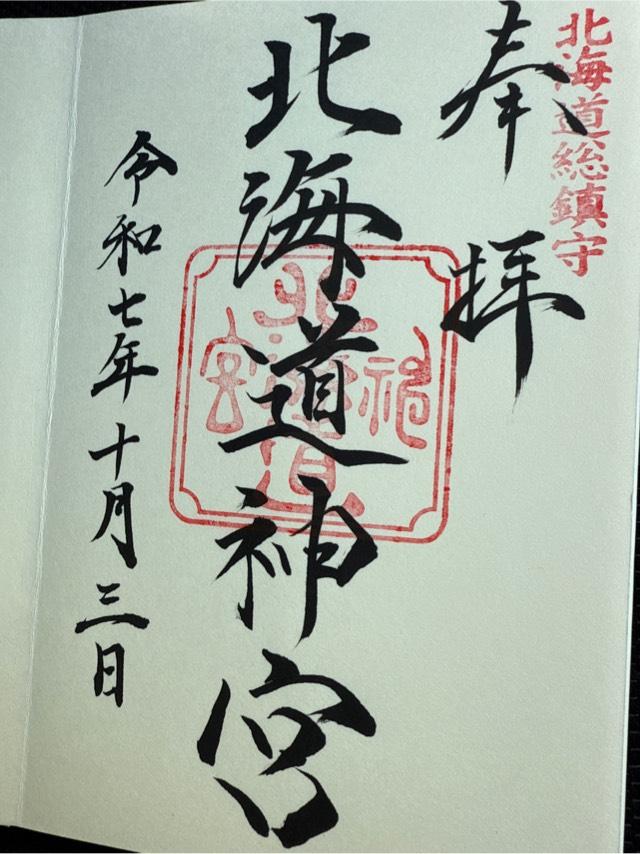 北海道総鎮守
奉拝
北海道神宮
北海道神宮
令和七年十月三日